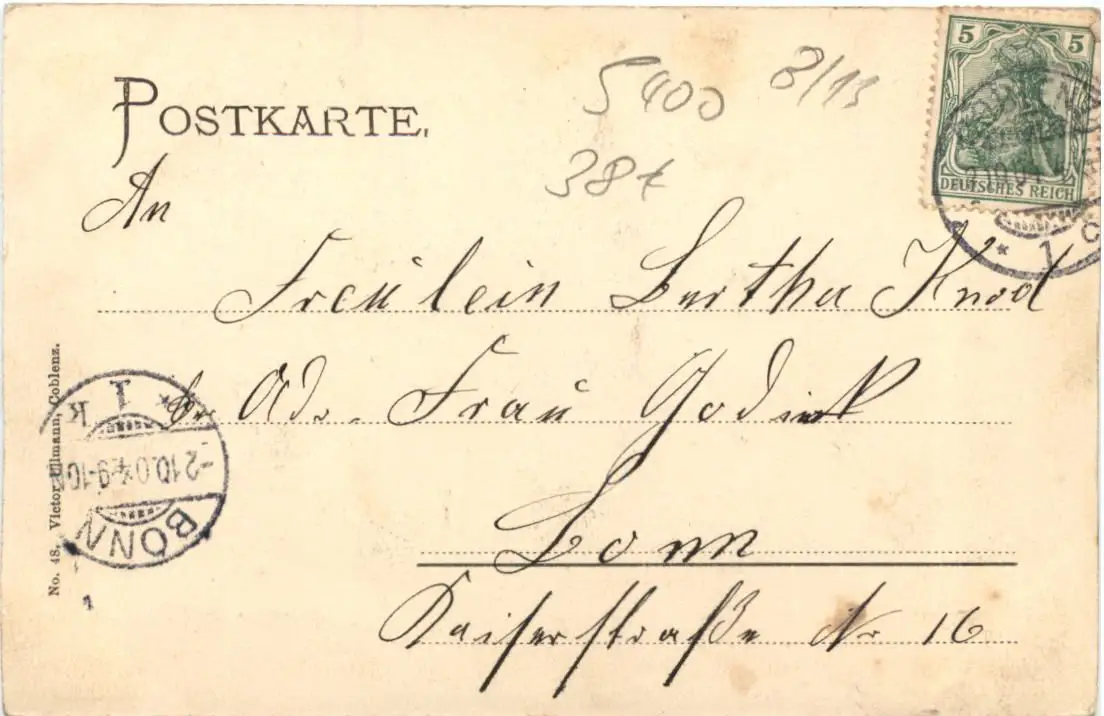 POSTKARTE.
5400
8/11
38 t
5 5
DEUTSCHES REICH
1 c
An
Fräulein Bertha Knod
Adr. Frau Godink
Bonn
Kaiserstraße Nr 16
No. 48. Victor Ullmann, Coblenz.
BONN
-2.10.04.9-10
* 1 k